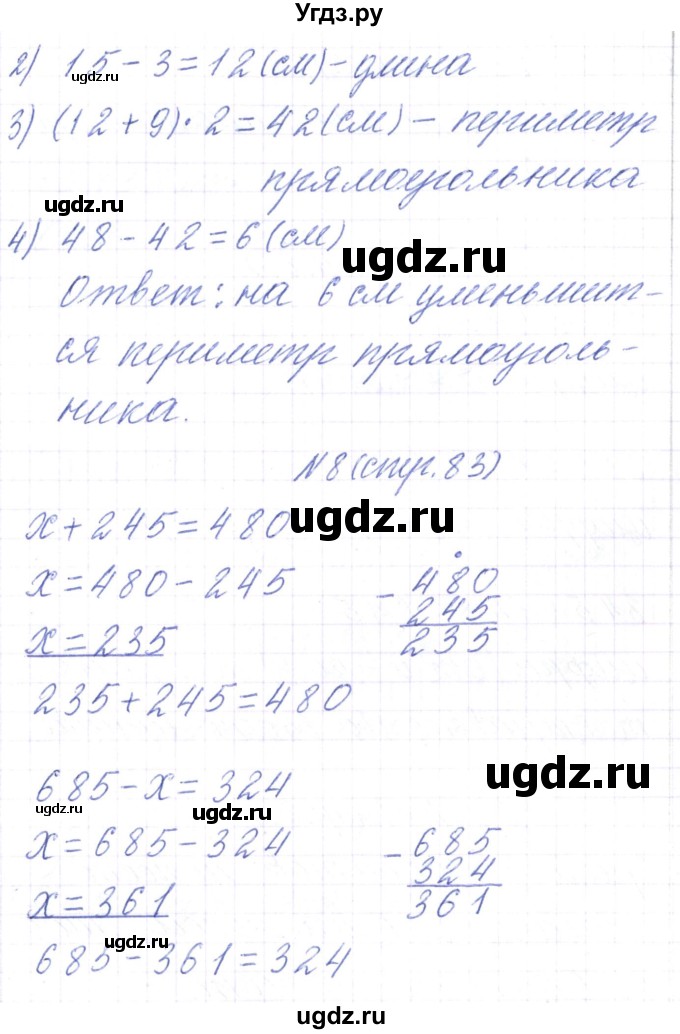 Угдз.ру
2) 15 - 3 = 12 (см) - длина
3) (12 + 9) · 2 = 42 (см) - периметр
прямоугольника
4) 48 - 42 = 6 (см)
Ответ: на 6 см уменьшит-
ся периметр прямоуголь-
ника.
№8 (стр. 83)
x + 245 = 480
x = 480 - 245
x = 235
235 + 245 = 480
- 480
245
235
685 - x = 324
x = 685 - 324
x = 361
685 - 361 = 324
- 685
324
361
ugdz.ru
ugdz.ru
ugdz.ru
ugdz.ru
ugdz.ru
ugdz.ru
ugdz.ru
ugdz.ru
ugdz.ru